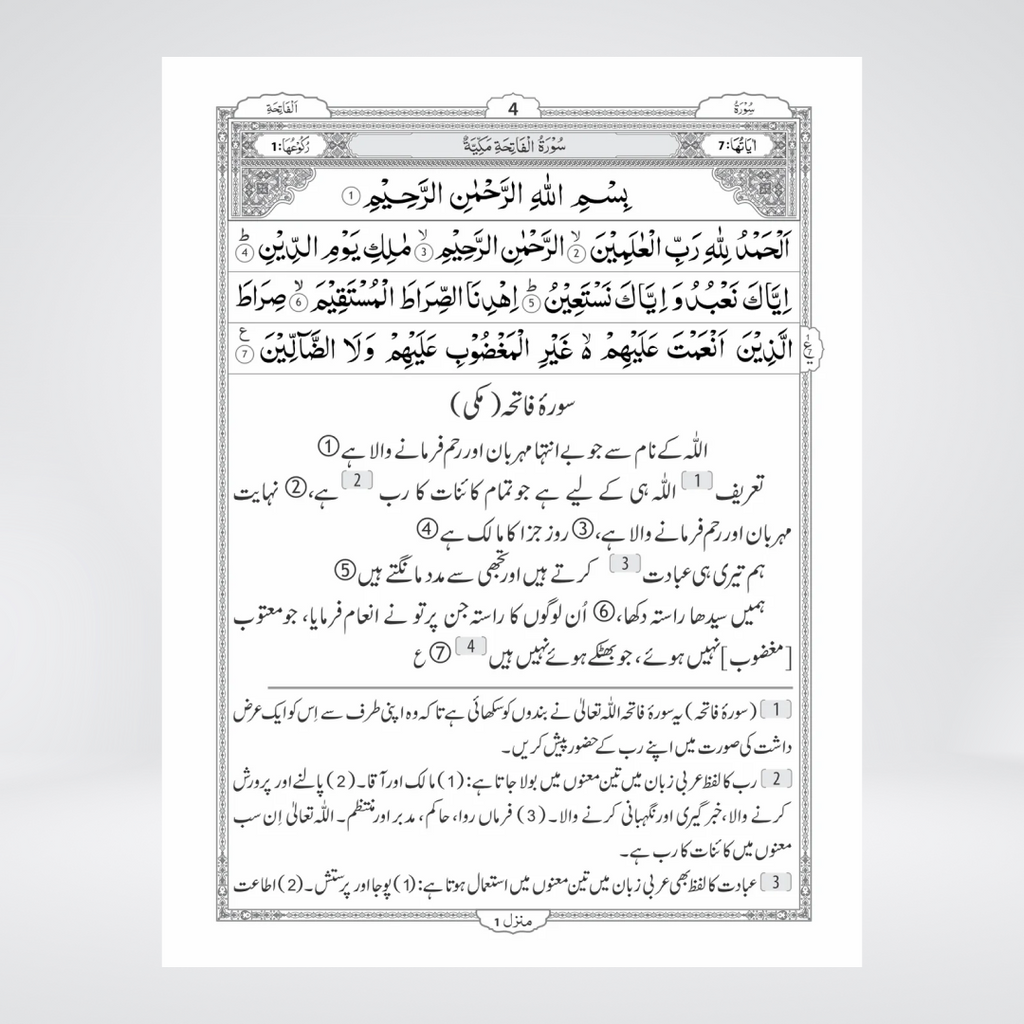 سُوْرَةُ
4
اَلْفَاتِحَةِ
اٰيَاتُهَا:7
سُوْرَةُ الْفَاتِحَةِ مَكِّيَّةٌ
رُكُوْعُهَا:1
بِسْمِ اللهِ الرَّحْمٰنِ الرَّحِيْمِ ①
اَلْحَمْدُ لِلّٰهِ رَبِّ الْعٰلَمِيْنَ ۙ② الرَّحْمٰنِ الرَّحِيْمِ ۙ③ مٰلِكِ يَوْمِ الدِّيْنِ ؕ④
اِيَّاكَ نَعْبُدُ وَ اِيَّاكَ نَسْتَعِيْنُ ؕ⑤ اِهْدِنَا الصِّرَاطَ الْمُسْتَقِيْمَ ۙ⑥ صِرَاطَ
الَّذِيْنَ اَنْعَمْتَ عَلَيْهِمْ ۙ۬ غَيْرِ الْمَغْضُوْبِ عَلَيْهِمْ وَلَا الضَّآلِّيْنَ ع⑦
سورۂ فاتحہ (مکی)
اللّٰہ کے نام سے جو بے انتہا مہربان اور رحم فرمانے والا ہے ①
تعریف [1] اللّٰہ ہی کے لیے ہے جو تمام کائنات کا رب [2] ہے، ② نہایت
مہربان اور رحم فرمانے والا ہے، ③ روز جزا کا مالک ہے ④
ہم تیری ہی عبادت [3] کرتے ہیں اور تجھی سے مدد مانگتے ہیں ⑤
ہمیں سیدھا راستہ دکھا، ⑥ اُن لوگوں کا راستہ جن پر تو نے انعام فرمایا، جو معتوب
[مغضوب] نہیں ہوئے، جو بھٹکے ہوئے نہیں ہیں [4] ⑦ ع
[1] (سورۂ فاتحہ) یہ سورۂ فاتحہ اللّٰہ تعالیٰ نے بندوں کو سکھائی ہے تاکہ وہ اپنی طرف سے اِس کو ایک عرض
داشت کی صورت میں اپنے رب کے حضور پیش کریں۔
[2] رب کا لفظ عربی زبان میں تین معنوں میں بولا جاتا ہے: (1) مالک اور آقا۔ (2) پالنے اور پرورش
کرنے والا، خبر گیری اور نگہبانی کرنے والا۔ (3) فرماں روا، حاکم، مدبر اور منتظم۔ اللّٰہ تعالیٰ اِن سب
معنوں میں کائنات کا رب ہے۔
[3] عبادت کا لفظ بھی عربی زبان میں تین معنوں میں استعمال ہوتا ہے: (1) پوجا اور پرستش۔ (2) اطاعت
منزل 1